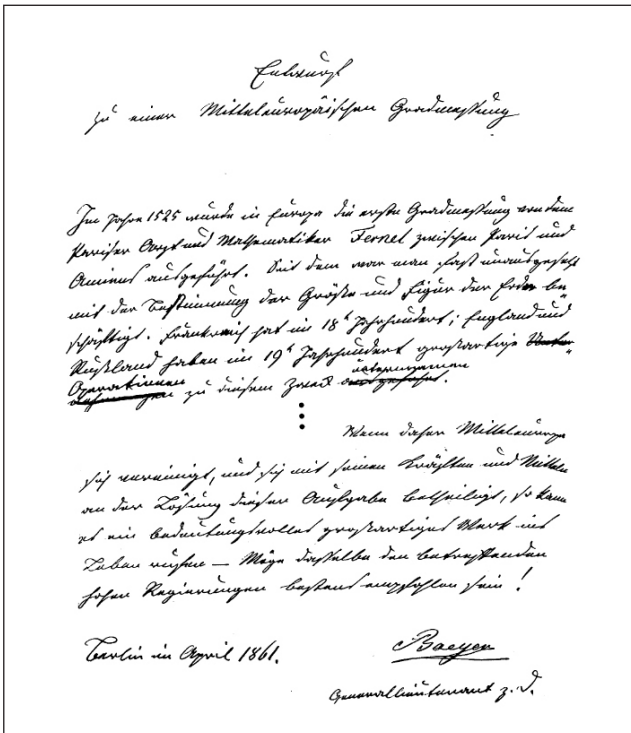 Entwurf
zu einer Mitteleuropäischen Gradmessung
Im Jahre 1525 wurde in Europa die erste Gradmessung von dem
Pariser Arzt und Mathematiker Fernel zwischen Paris und
Amiens ausgeführt. Seit dem war man fast unausgesetzt
mit der Bestimmung der Größe und Figur der Erde be
schäftigt. Frankreich hat im 18t Jahrhundert; England und
Rußland haben im 19t Jahrhundert großartige Unter-
Operationen zu diesem Zweck unternommen ausgeführt.
Wenn daher Mitteleuropa
sich vereinigt, und sich mit seinen Kräften und Mitteln
an der Lösung dieser Aufgabe betheiligt, so kann
es ein bedeutungsvolles großartiges Werk ins
Leben rufen — Möge dasselbe den betreffenden
hohen Regierungen bestens empfohlen sein!
Berlin im April 1861.
Baeyer
Generallieutenant z. D.